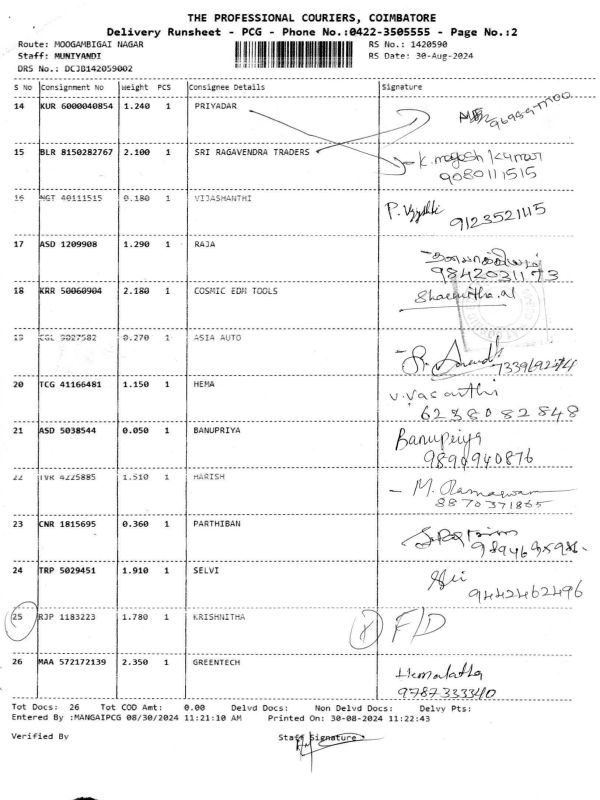 THE PROFESSIONAL COURIERS, COIMBATORE
Delivery Runsheet - PCG - Phone No.:0422-3505555 - Page No.:2
Route: MOOGAMBIGAI NAGAR RS No.: 1420590
Staff: MUNIYANDI RS Date: 30-Aug-2024
DRS No.: DCJB142059002
S No Consignment No Weight PCS Consignee Details Signature
14 KUR 6000040854 1.240 1 PRIYADAR
15 BLR 8150282767 2.100 1 SRI RAGAVENDRA TRADERS K. magesh kumar
9080111515
16 NGT 40111515 0.180 1 VIJASHANTHI
9123521115
17 ASD 1209908 1.290 1 RAJA
9842031173
18 KRR 50060904 2.180 1 COSMIC EDM TOOLS
19 CGL 9027582 0.270 1 ASIA AUTO
20 TCG 41166481 1.150 1 HEMA V. Vasanthi
6238082848
21 ASD 5038544 0.050 1 BANUPRIYA Banupriya
9894940876
22 TVR 4225885 1.510 1 HARISH
8870371865
23 CNR 1815695 0.360 1 PARTHIBAN
24 TRP 5029451 1.910 1 SELVI
9442462496
25 RJP 1183223 1.780 1 KRISHNITHA F/D
26 MAA 572172139 2.350 1 GREENTECH Hemalatha
9787333340
Tot Docs: 26 Tot COD Amt: 0.00 Delvd Docs: Non Delvd Docs: Delvy Pts:
Entered By :MANGAIPCG 08/30/2024 11:21:10 AM Printed On: 30-08-2024 11:22:43
Verified By Staff Signature